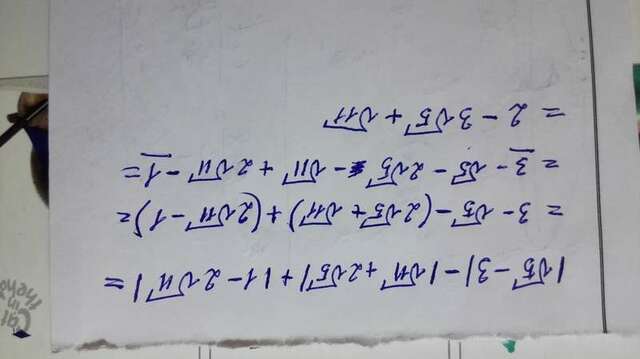 |√5 - 3| - |√11 + 2√5| + |1 - 2√11| =
= 3 - √5 - (2√5 + √11) + (2√11 - 1) =
= 3 - √5 - 2√5 - √11 + 2√11 - 1 =
= 2 - 3√5 + √11